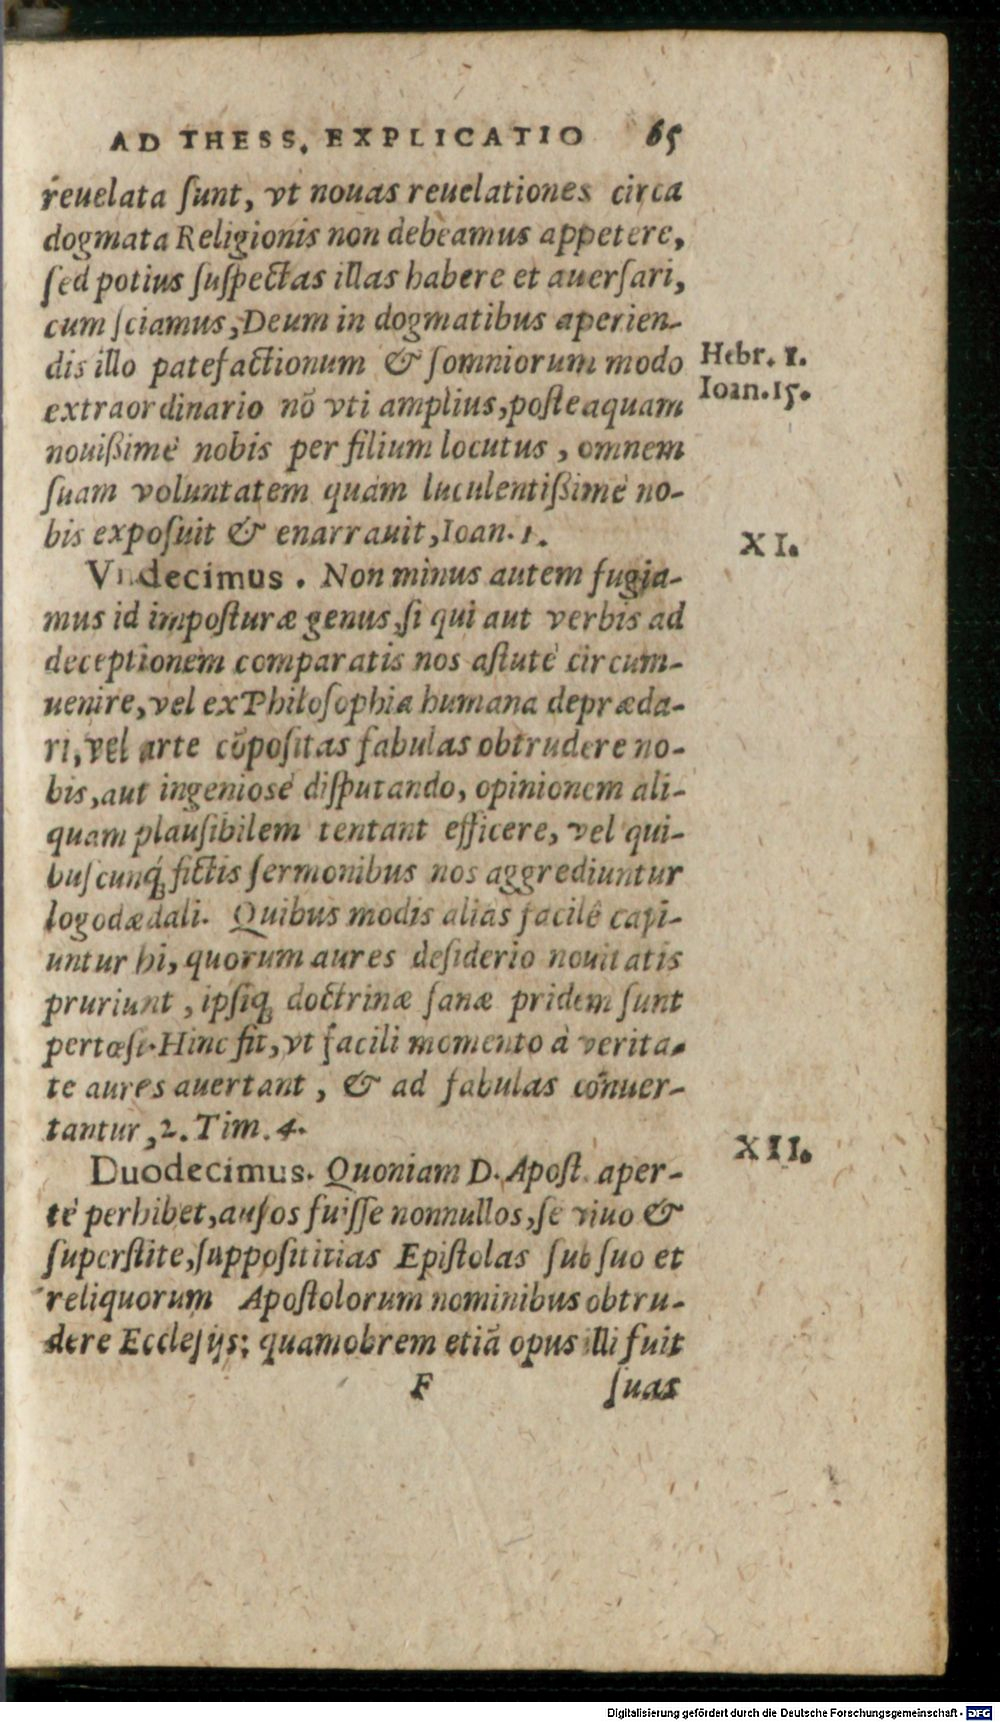 AD THESS. EXPLICATIO 65
reuelata ſunt, vt nouas reuelationes circa
dogmata Religionis non debeamus appetere,
ſed potius ſuſpectas illas habere et auerſari,
cum ſciamus, Deum in dogmatibus aperien-
dis illo patefactionum & ſomniorum modo
Hebr. 1.
extraordinario nõ vti amplius, poſteaquam
Ioan. 15.
nouißimè nobis per filium locutus, omnem
ſuam voluntatem quàm luculentißimè no-
bis expoſuit & enarrauit, Ioan. 1.
XI.
Vndecimus. Non minus autem fugia-
mus id impoſturæ genus, ſi qui aut verbis ad
deceptionem comparatis nos aſtutè circum-
uenire, vel ex Philoſophia humana depræda-
ri, vel arte cõpoſitas fabulas obtrudere no-
bis, aut ingenioſè diſputando, opinionem ali-
quam plauſibilem tentant efficere, vel qui-
buſcunq; fictis ſermonibus nos aggrediuntur
logodædali. Quibus modis alias facilè capi-
untur hi, quorum aures deſiderio nouitatis
pruriunt, ipſiq; doctrinæ ſanæ pridem ſunt
pertæſi. Hinc fit, vt facili momento à verita-
te aures auertant, & ad fabulas conuer-
tantur, 2. Tim. 4.
XII.
Duodecimus. Quoniam D. Apoſt. aper-
tè perhibet, auſos fuiſſe nonnullos, ſe viuo &
ſuperſtite, ſuppoſititias Epiſtolas ſub ſuo et
reliquorum Apoſtolorum nominibus obtru-
dere Eccleſijs; quamobrem etiã opus illi fuit
F ſuas
Digitalisierung gefördert durch die Deutsche Forschungsgemeinschaft - DFG